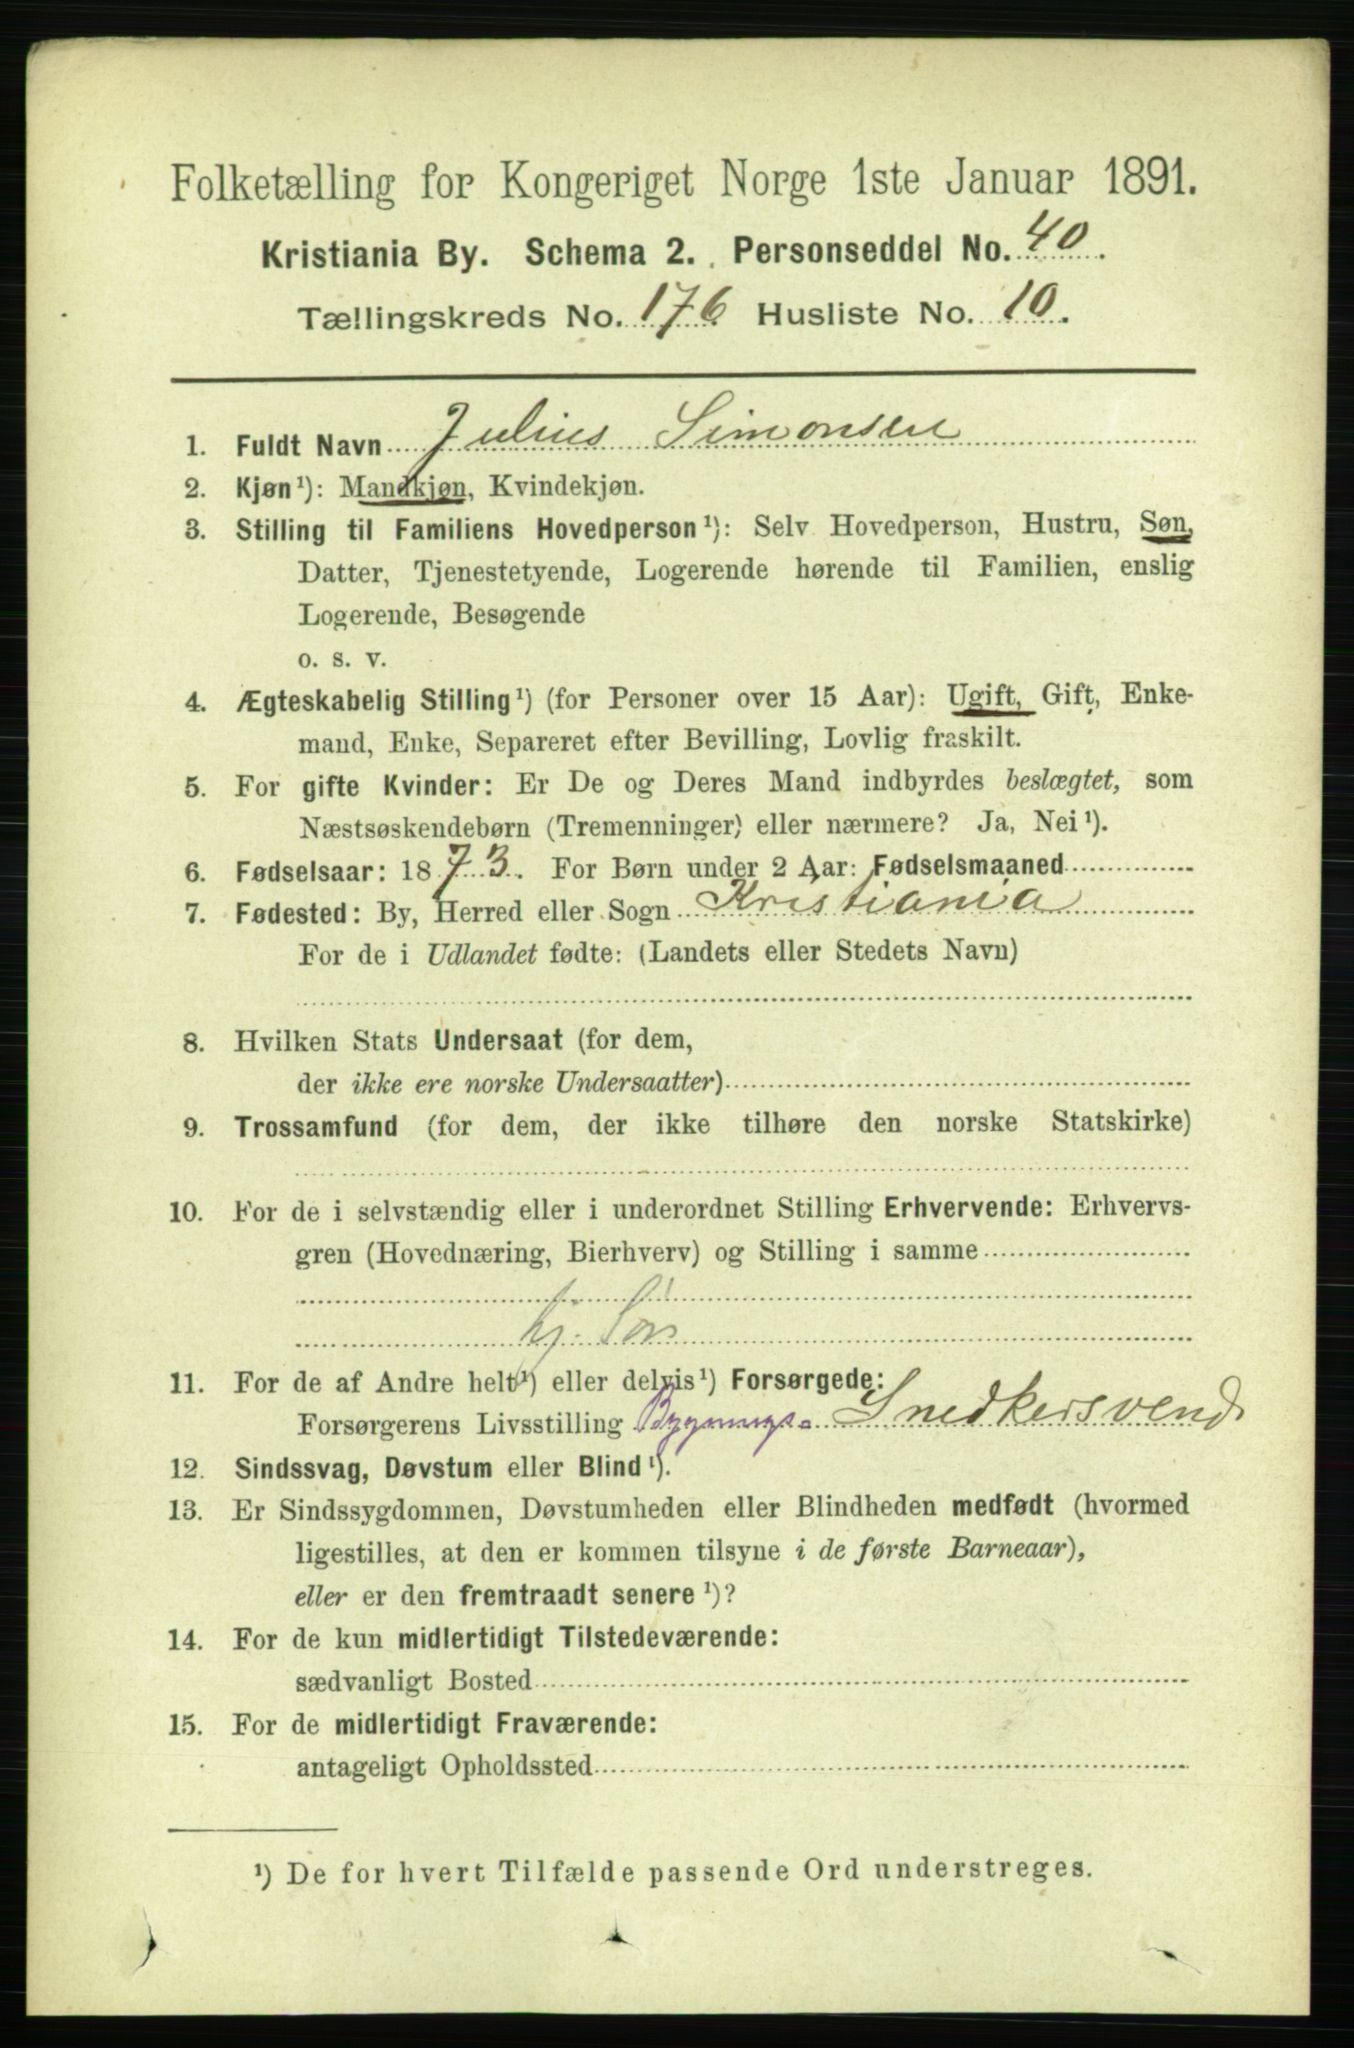 Folketælling for Kongeriget Norge 1ste Januar 1891.
Kristiania By. Schema 2. Personseddel No. 40.
Tællingskreds No. 176 Husliste No. 10.
1. Fuldt Navn Julius Simonsen
2. Kjøn¹): Mandkjøn, Kvindekjøn.
3. Stilling til Familiens Hovedperson¹): Selv Hovedperson, Hustru, Søn,
Datter, Tjenestetyende, Logerende hørende til Familien, enslig
Logerende, Besøgende
o. s. v.
4. Ægteskabelig Stilling¹) (for Personer over 15 Aar): Ugift, Gift, Enke-
mand, Enke, Separeret efter Bevilling, Lovlig fraskilt.
5. For gifte Kvinder: Er De og Deres Mand indbyrdes beslægtet, som
Næstsøskendebørn (Tremenninger) eller nærmere? Ja, Nei¹).
6. Fødselsaar: 1873. For Børn under 2 Aar: Fødselsmaaned
7. Fødested: By, Herred eller Sogn Kristiania
For de i Udlandet fødte: (Landets eller Stedets Navn)
8. Hvilken Stats Undersaat (for dem,
der ikke ere norske Undersaatter)
9. Trossamfund (for dem, der ikke tilhøre den norske Statskirke)
10. For de i selvstændig eller i underordnet Stilling Erhvervende: Erhvervs-
gren (Hovednæring, Bierhverv) og Stilling i samme
hj. Søn
11. For de af Andre helt¹) eller delvis¹) Forsørgede:
Forsørgerens Livsstilling Bygnings- Snedkersvend
12. Sindssvag, Døvstum eller Blind¹).
13. Er Sindssygdommen, Døvstumheden eller Blindheden medfødt (hvormed
ligestilles, at den er kommen tilsyne i de første Barneaar),
eller er den fremtraadt senere¹)?
14. For de kun midlertidigt Tilstedeværende:
sædvanligt Bosted
15. For de midlertidigt Fraværende:
antageligt Opholdssted
¹) De for hvert Tilfælde passende Ord understreges.